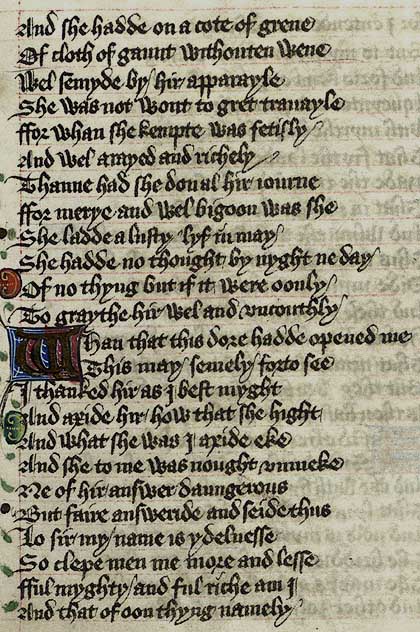 And she hadde on a cote of grene
Of cloth of gaunt withouten wene
Wel semyde by hir apparayle
She was not wont to gret trauayle
ffor whan she kempte was fetisly
And wel arayed and richely
Thanne had she don al hir iourne
ffor merye and wel bigoon was she
She ladde a lusty lyf in may
She hadde no thought by nyght ne day
Of no thyng but if it were oonly
To graythe hir wel and vncouthly
Whan that this dore hadde opened me
This may semely forto see
I thanked hir as I best myght
And axide hir how that she hight
And what she was I axide eke
And she to me was nought vnmeke
Ne of hir answer daungerous
But faire answeride and seide thus
Lo sir my name is ydelnesse
So clepe men me more and lesse
fful myghty and ful riche am I
And that of oon thyng namely